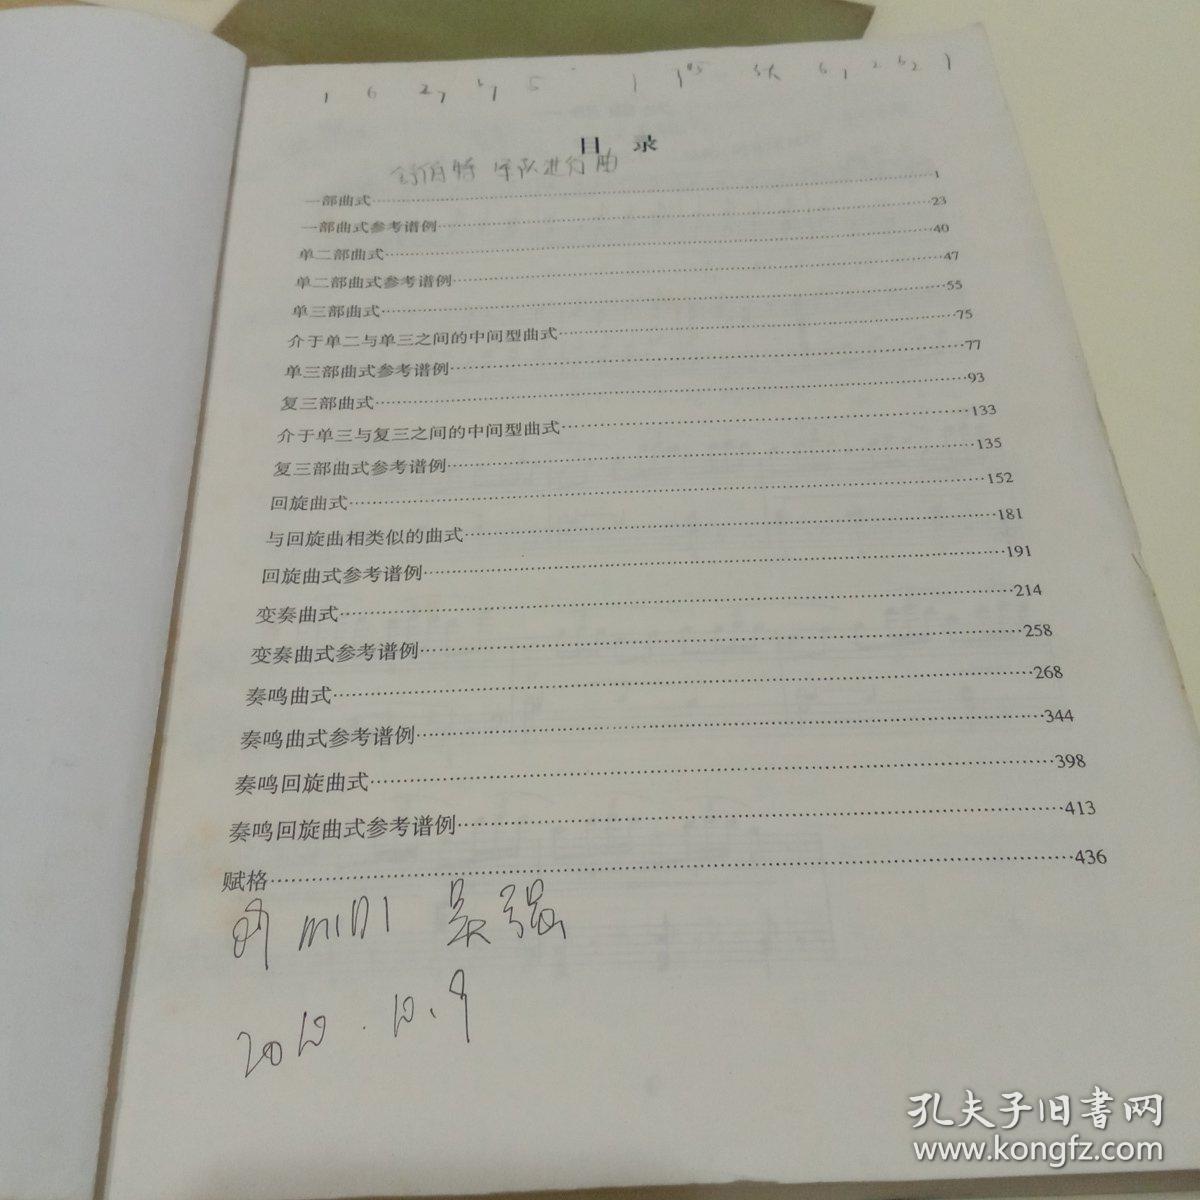 目 录
舒伯特 军队进行曲
一部曲式……1
一部曲式参考谱例……23
单二部曲式……40
单二部曲式参考谱例……47
单三部曲式……55
介于单二与单三之间的中间型曲式……75
单三部曲式参考谱例……77
复三部曲式……93
介于单三与复三之间的中间型曲式……133
复三部曲式参考谱例……135
回旋曲式……152
与回旋曲相类似的曲式……181
回旋曲式参考谱例……191
变奏曲式……214
变奏曲式参考谱例……258
奏鸣曲式……268
奏鸣曲式参考谱例……344
奏鸣回旋曲式……398
奏鸣回旋曲式参考谱例……413
赋格……436
09 MIDI 吴强
2010.10.9
孔夫子旧书网
www.kongfz.com